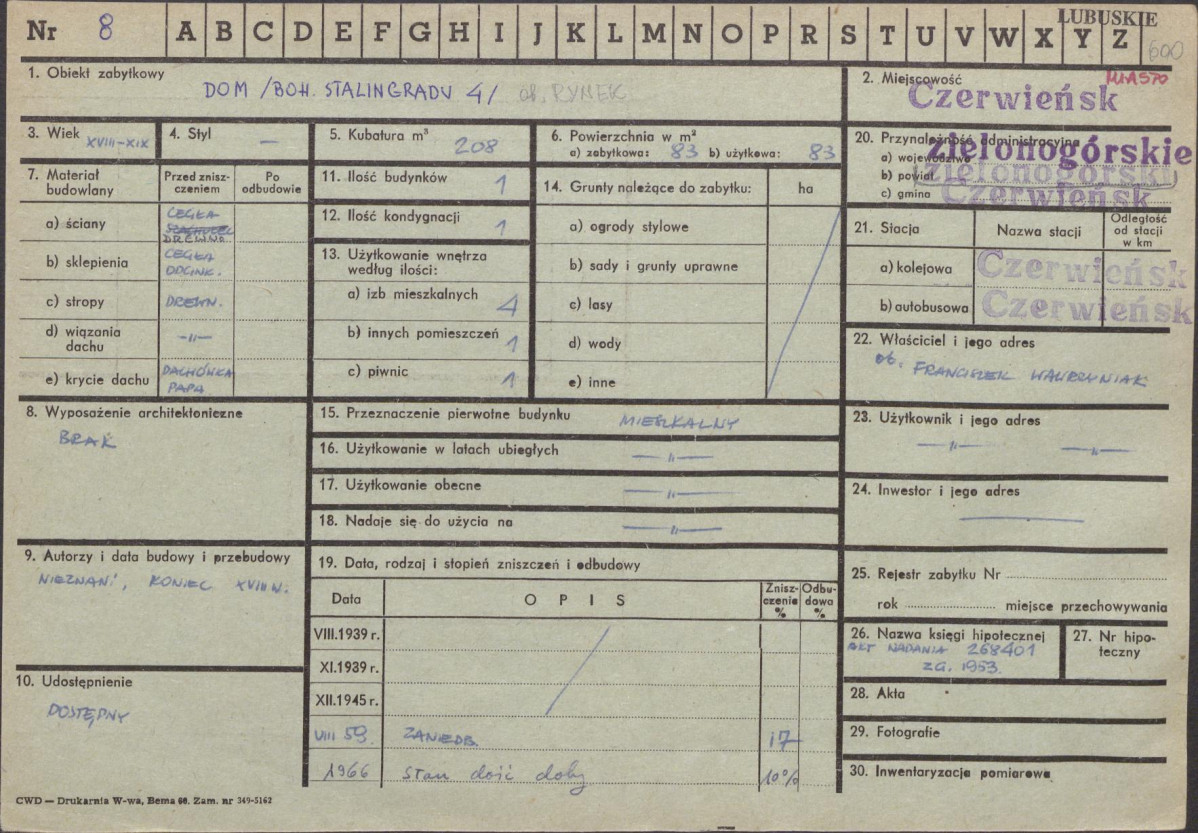 Nr 8 A B C D E F G H I J K L M N O P R S T U V W X Y Z
LUBUSKIE
600
1. Obiekt zabytkowy
DOM /BOH. STALINGRADU 4/ ob. RYNEK
2. Miejscowość
MIASTO
Czerwieńsk
3. Wiek
XVIII-XIX
4. Styl
—
5. Kubatura m³
208
6. Powierzchnia w m²
a) zabytkowa: 83 b) użytkowa: 83
20. Przynależność administracyjna
a) województwo zielonogórskie
b) powiat zielonogórski
c) gmina Czerwieńsk
7. Materiał budowlany
Przed zniszczeniem
Po odbudowie
a) ściany
CEGŁA
DREWNO
b) sklepienia
CEGŁA
ODCINK.
c) stropy
DREWN.
d) wiązania dachu
—"—
e) krycie dachu
DACHÓWKA
PAPA
11. Ilość budynków 1
12. Ilość kondygnacji 1
13. Użytkowanie wnętrza
według ilości:
a) izb mieszkalnych 4
b) innych pomieszczeń 1
c) piwnic 1
14. Grunty należące do zabytku:
ha
a) ogrody stylowe
b) sady i grunty uprawne
c) lasy
d) wody
e) inne
21. Stacja
Nazwa stacji
Odległość
od stacji
w km
a) kolejowa Czerwieńsk
b) autobusowa Czerwieńsk
22. Właściciel i jego adres
ob. FRANCISZEK WAWRZYNIAK
8. Wyposażenie architektoniczne
BRAK
15. Przeznaczenie pierwotne budynku MIESZKALNY
16. Użytkowanie w latach ubiegłych —"—
17. Użytkowanie obecne —"—
18. Nadaje się do użycia na —"—
23. Użytkownik i jego adres
—"— —"—
24. Inwestor i jego adres
—
9. Autorzy i data budowy i przebudowy
NIEZNANI, KONIEC XVIII W.
19. Data, rodzaj i stopień zniszczeń i odbudowy
Data
OPIS
Zniszczenie %
Odbudowa %
VIII.1939 r.
XI.1939 r.
XII.1945 r.
VIII 59. ZANIEDB. 17
1966 Stan dość dobry 10%
25. Rejestr zabytku Nr
rok miejsce przechowywania
26. Nazwa księgi hipotecznej
AKT NADANIA 268401
Z G. 1953.
27. Nr hipoteczny
10. Udostępnienie
DOSTĘPNY
28. Akta
29. Fotografie
30. Inwentaryzacja pomiarowa
CWD — Drukarnia W-wa, Bema 60. Zam. nr 349-5162